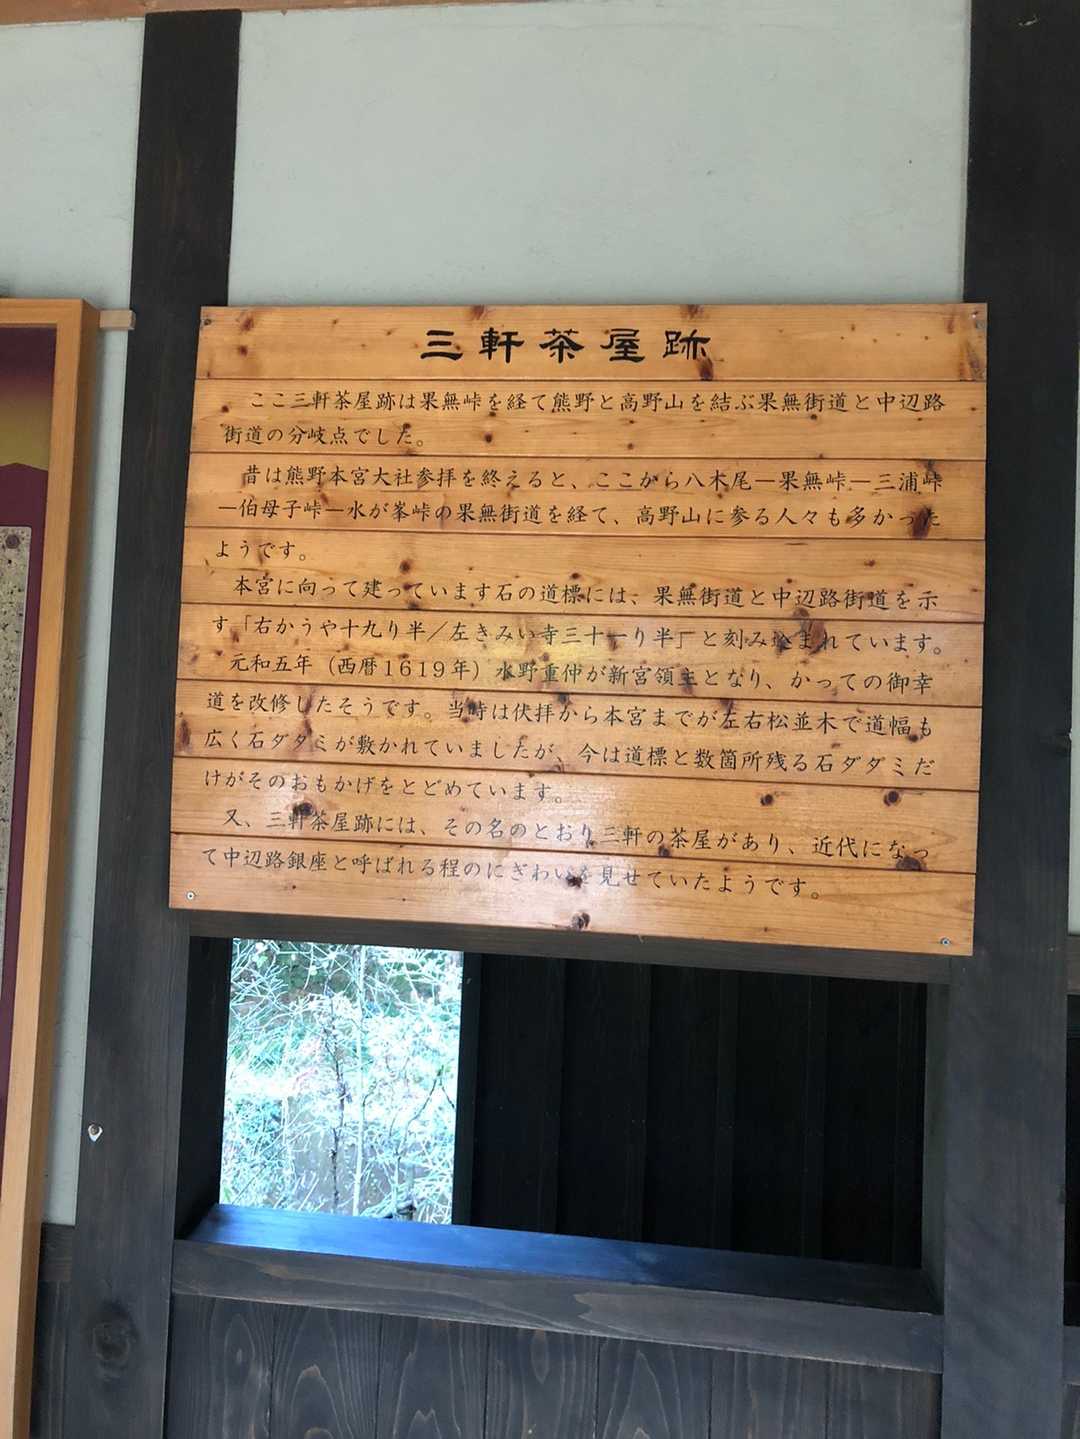 三軒茶屋跡
ここ三軒茶屋跡は果無峠を経て熊野と高野山を結ぶ果無街道と中辺路
街道の分岐点でした。
昔は熊野本宮大社参拝を終えると、ここから八木尾－果無峠－三浦峠
－伯母子峠－水が峯峠の果無街道を経て、高野山に参る人々も多かった
ようです。
本宮に向って建っています石の道標には、果無街道と中辺路街道を示
す「右かうや十九り半／左きみい寺三十一り半」と刻み込まれています。
元和五年（西暦1619年）水野重仲が新宮領主となり、かっての御幸
道を改修したそうです。当時は伏拝から本宮までが左右松並木で道幅も
広く石ダタミが敷かれていましたが、今は道標と数箇所残る石ダダミだ
けがそのおもかげをとどめています。
又、三軒茶屋跡には、その名のとおり三軒の茶屋があり、近代になっ
て中辺路銀座と呼ばれる程のにぎわいを見せていたようです。